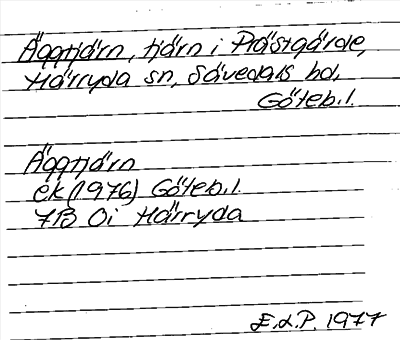 Äggtjärn, tjärn i Prästgårde,
Härryda sn, Sävedals hd,
Göteb.l.
Äggtjärn
ek (1976) Göteb.l.
7B 0i Härryda
E.L.P. 1977